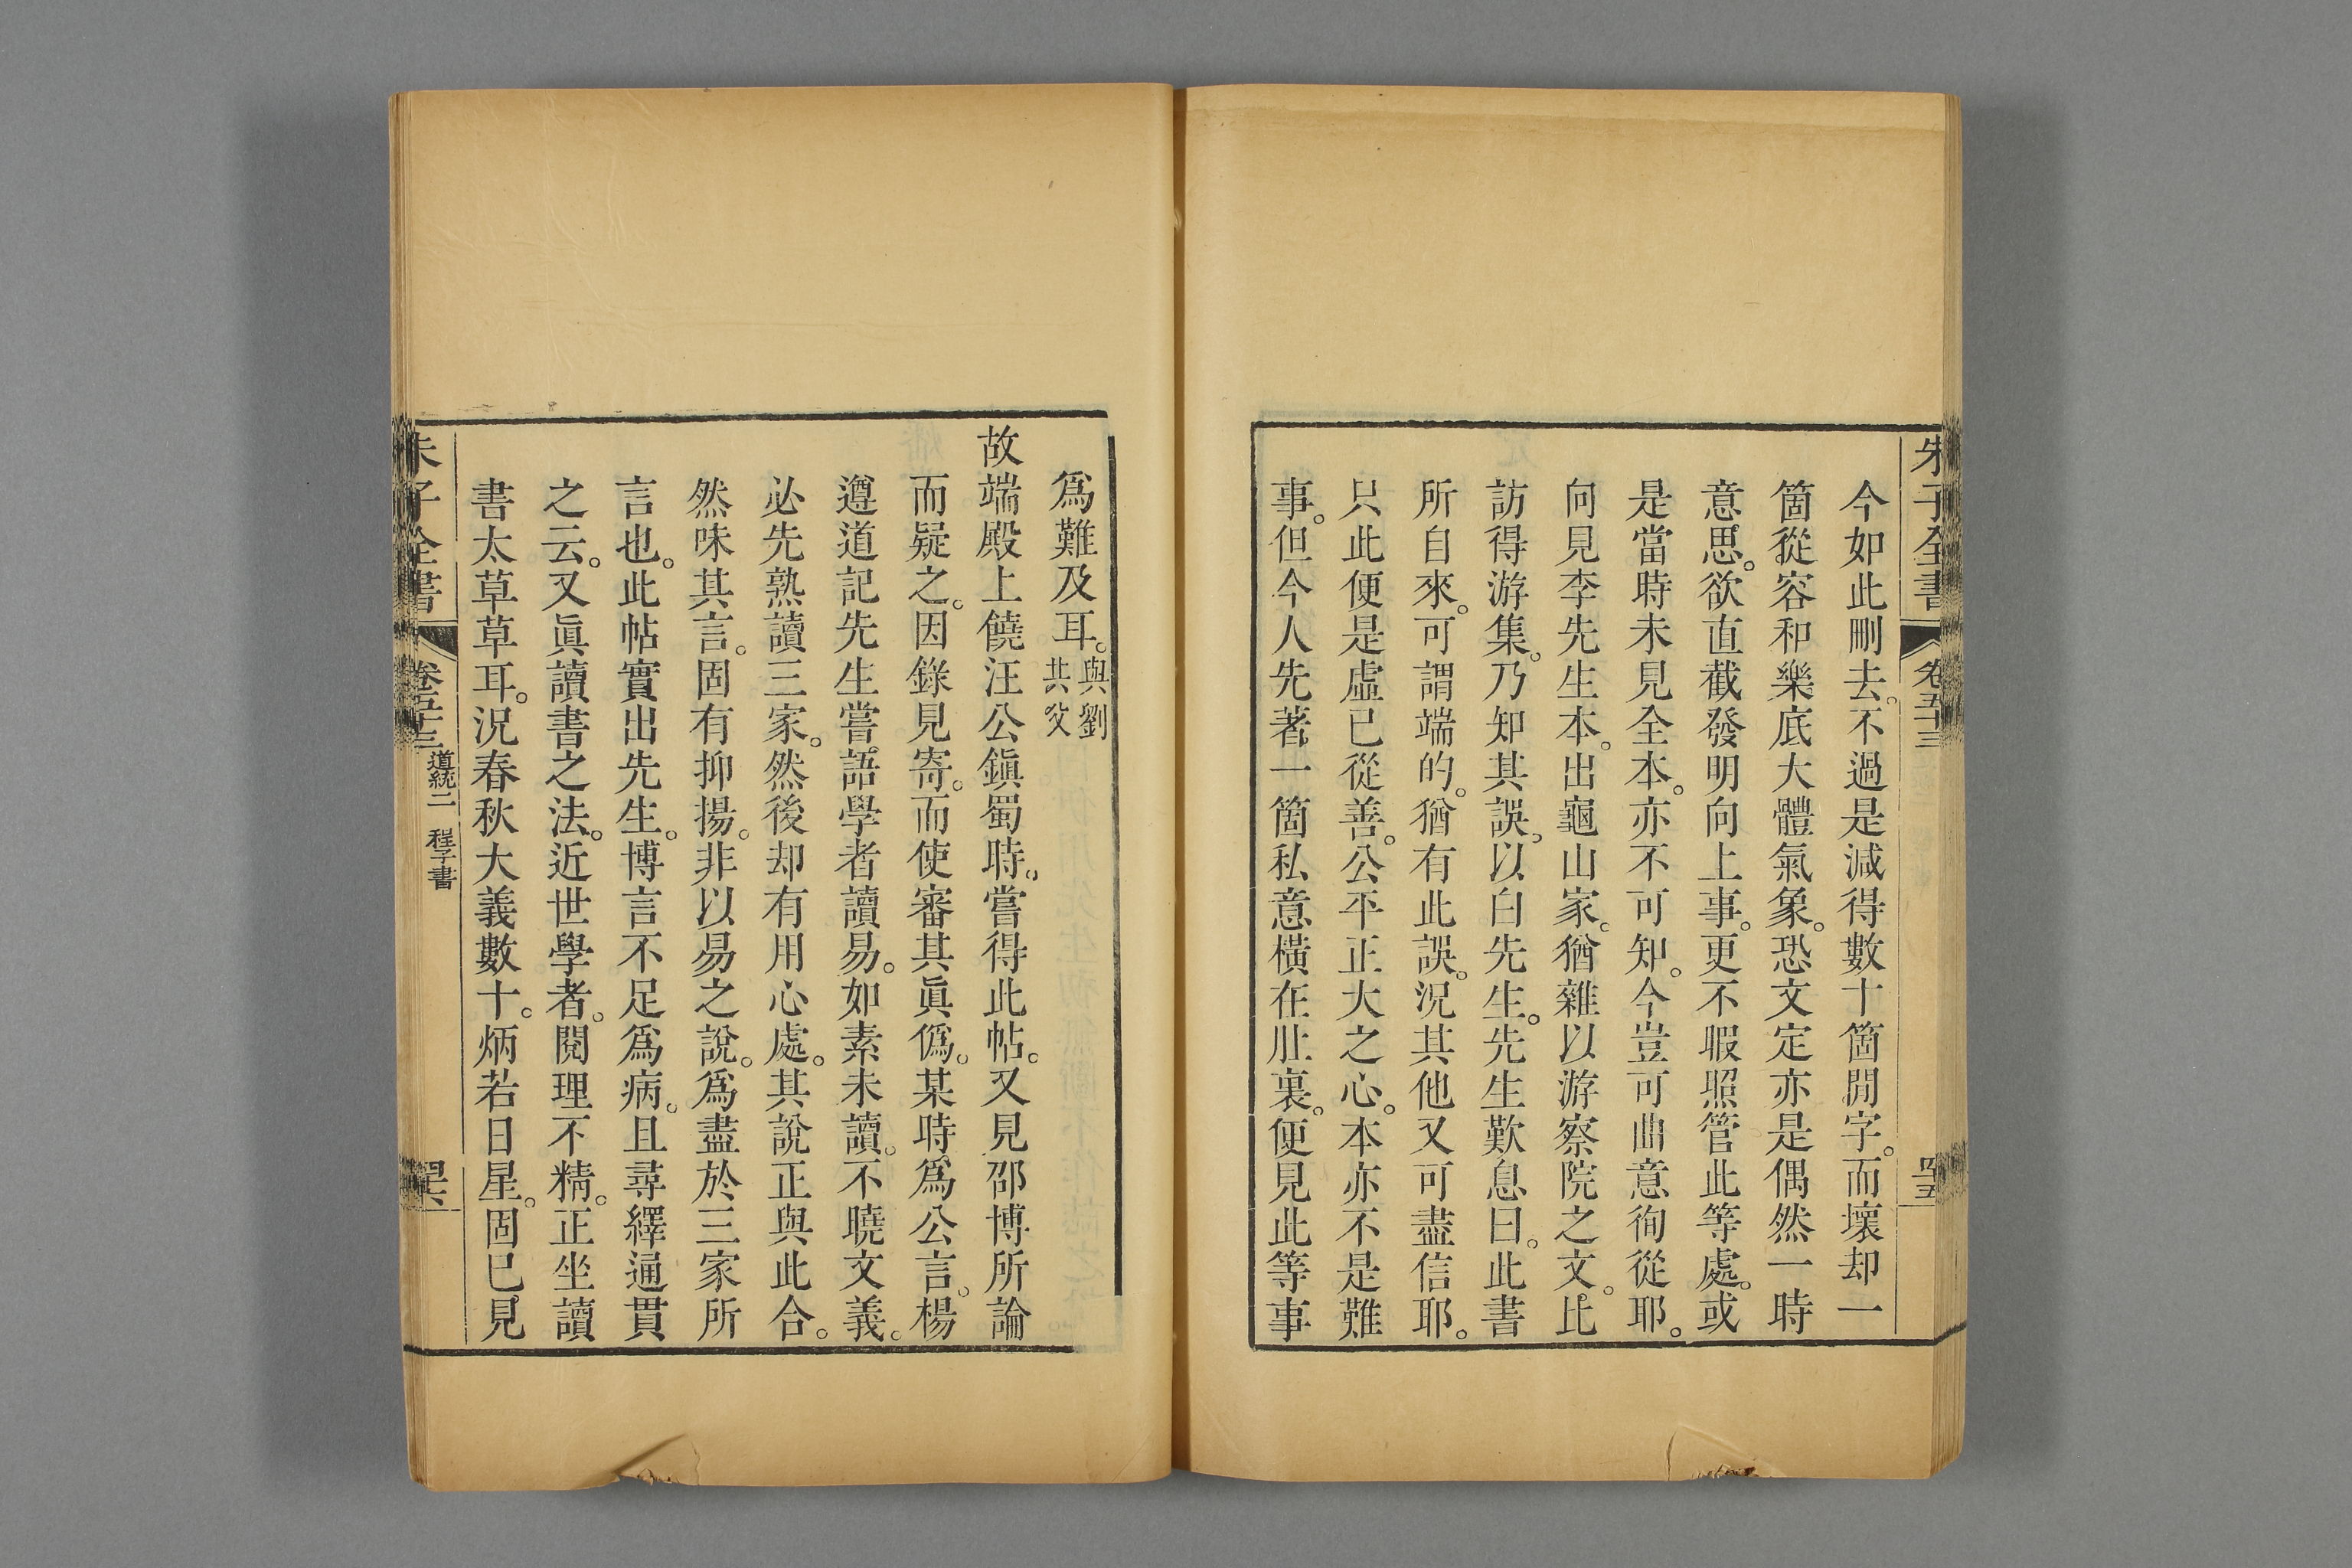 朱子全書 卷五十三 四十五
今如此刪去。不過是減得數十箇閒字。而壞却一
箇從容和樂底大體氣象。恐文定亦是偶然一時
意思。欲直截發明向上事。更不暇照管此等處。或
是當時未見全本。亦不可知。今豈可曲意徇從耶。
向見李先生本。出龜山家。猶雜以游察院之文。比
訪得游集。乃知其誤。以白先生。先生歎息曰。此書
所自來。可謂端的。猶有此誤。況其他又可盡信耶。
只此便是虛己從善。公平正大之心。本亦不是難
事。但今人先著一箇私意橫在肚裏。便見此等事
爲難及耳。與劉共父
故端殿上饒汪公鎭蜀時。嘗得此帖。又見邵博所論
而疑之。因錄見寄。而使審其眞僞。某時爲公言。楊
遵道記先生嘗語學者讀易。如素未讀。不曉文義。
必先熟讀三家。然後却有用心處。其說正與此合。
然味其言。固有抑揚。非以易之說。爲盡於三家所
言也。此帖實出先生。博言不足爲病。且尋繹通貫
之云。又眞讀書之法。近世學者。閱理不精。正坐讀
書太草草耳。況春秋大義數十。炳若日星。固已見
朱子全書 卷五十三 道統二 程子書 四十六